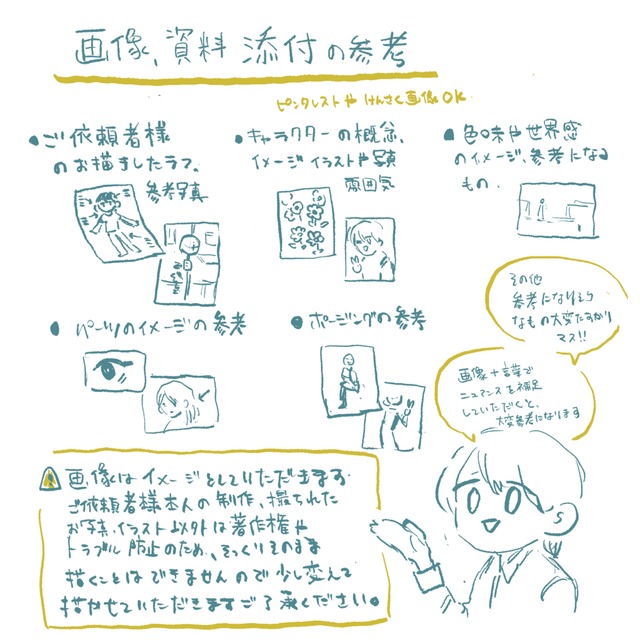 画像、資料 添付の参考
ピンタレストや けんさく画像OK
●ご依頼者様
のお描きしたラフ、
参考写真
●キャラクターの概念、
イメージイラストや写真
雰囲気
●色味や世界感
のイメージ、参考になる
もの。
●パーツのイメージの参考
●ポージングの参考
その他
参考になりそう
なもの大変たすかり
マス!!
画像+言葉で
ニュアンスを補足
していただくと、
大変参考になります
画像はイメージとしていただきます
ご依頼者様本人の制作、撮られた
お写真、イラスト以外は著作権や
トラブル防止のため、そっくりそのまま
描くことはできませんので少し変えて
描かせていただきますご了承ください。